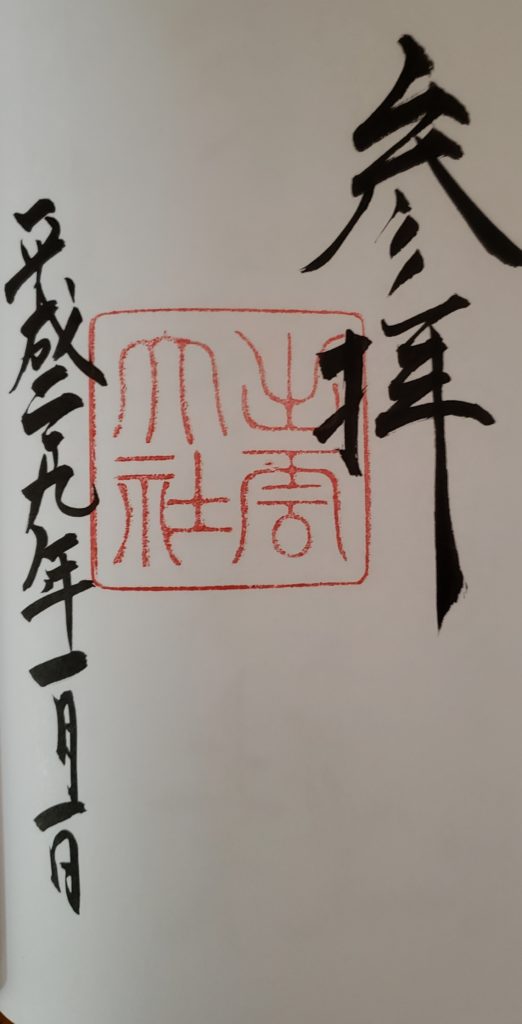 参拝
出雲
大社
平成二十九年一月一日